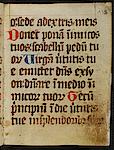 o sede a dextris meis
Donec ponā inimicos
tuos scabellū pedū tuo
rū Virgā virtutis tu
e emittet dn̄s ex sy
on dn̄are in medio ini
micorū tuorū Tecū
principiū in die virtutis
tue in splendoribus